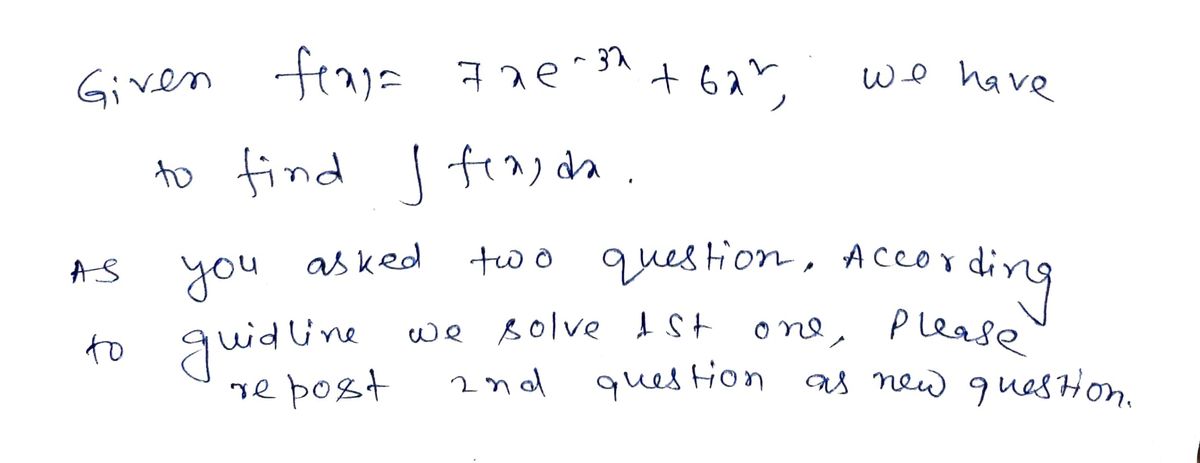 Given f(x)= 7xe^-3x + 6x², we have
to find ∫ f(x) dx .
As you asked two question. According
to guidline we solve 1st one, Please
repost 2nd question as new question.